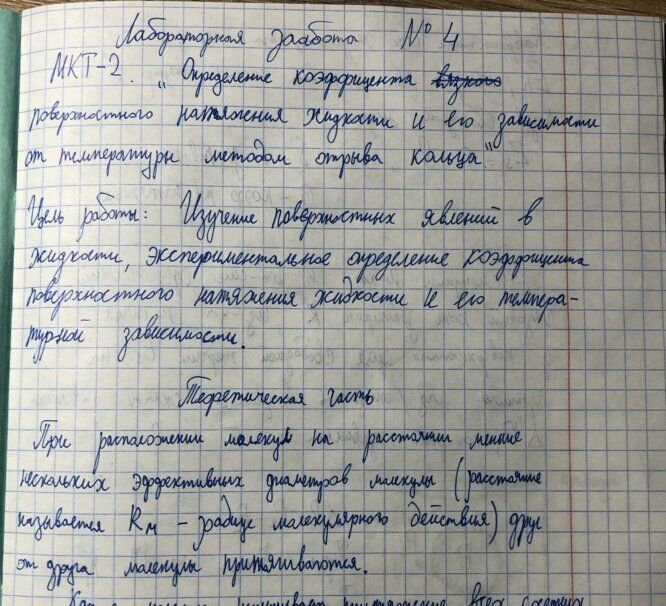 Лабораторная работа № 4
МКТ-2. „Определение коэффициента
поверхностного натяжения жидкости и его зависимости
от температуры методом отрыва кольца"
Цель работы: Изучение поверхностных явлений в
жидкости, экспериментальное определение коэффициента
поверхностного натяжения жидкости и его темпера-
турной зависимости.
Теоретическая часть
При расположении молекул на расстоянии меньше
нескольких эффективных диаметров молекулы (расстояние
называется Rм – радиус молекулярного действия) друг
от друга молекулы притягиваются.